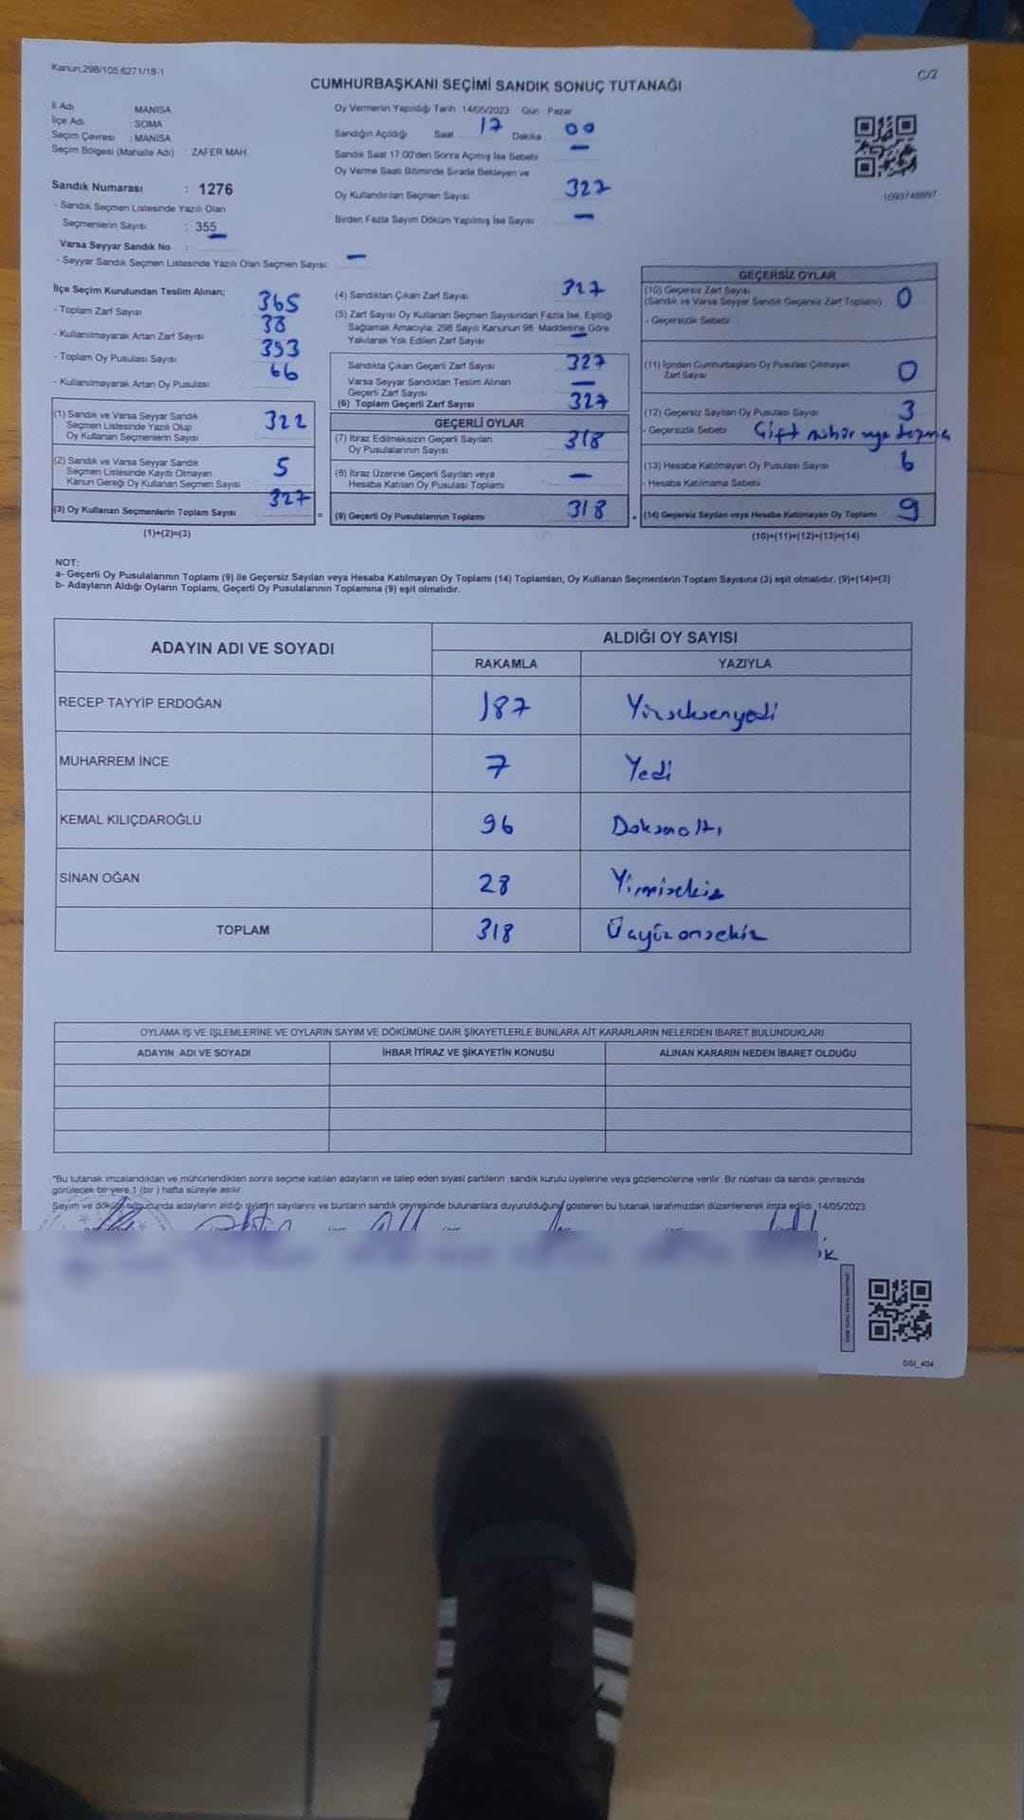 Kanun:298/105.6271/18-1
C/2
CUMHURBAŞKANI SEÇİMİ SANDIK SONUÇ TUTANAĞI
İl Adı MANİSA
İlçe Adı : SOMA
Seçim Çevresi : MANİSA
Seçim Bölgesi (Mahalle Adı) : ZAFER MAH.
Sandık Numarası : 1276
- Sandık Seçmen Listesinde Yazılı Olan
Seçmenlerin Sayısı : 355
Varsa Seyyar Sandık No :
- Seyyar Sandık Seçmen Listesinde Yazılı Olan Seçmen Sayısı: —
Oy Vermenin Yapıldığı Tarih 14/05/2023 Gün Pazar
Sandığın Açıldığı Saat 17 Dakika 00
Sandık Saat 17:00'den Sonra Açılmış İse Sebebi —
Oy Verme Saati Bitiminde Sırada Bekleyen ve
Oy Kullandırılan Seçmen Sayısı 327
Birden Fazla Sayım Döküm Yapılmış İse Sayısı —
İlçe Seçim Kurulundan Teslim Alınan;
- Toplam Zarf Sayısı 365
- Kullanılmayarak Artan Zarf Sayısı 38
- Toplam Oy Pusulası Sayısı 393
- Kullanılmayarak Artan Oy Pusulası 66
(1) Sandık ve Varsa Seyyar Sandık
Seçmen Listesinde Yazılı Olup
Oy Kullanan Seçmenlerin Sayısı 322
(2) Sandık ve Varsa Seyyar Sandık
Seçmen Listesinde Kayıtlı Olmayan
Kanun Gereği Oy Kullanan Seçmen Sayısı 5
(3) Oy Kullanan Seçmenlerin Toplam Sayısı 327
(1)+(2)=(3)
(4) Sandıktan Çıkan Zarf Sayısı 327
(5) Zarf Sayısı Oy Kullanan Seçmen Sayısından Fazla İse, Eşitliği
Sağlamak Amacıyla; 298 Sayılı Kanunun 98. Maddesine Göre
Yakılarak Yok Edilen Zarf Sayısı —
Sandıkta Çıkan Geçerli Zarf Sayısı 327
Varsa Seyyar Sandıktan Teslim Alınan
Geçerli Zarf Sayısı —
(6) Toplam Geçerli Zarf Sayısı 327
GEÇERLİ OYLAR
(7) İtiraz Edilmeksizin Geçerli Sayılan
Oy Pusulalarının Sayısı 318
(8) İtiraz Üzerine Geçerli Sayılan veya
Hesaba Katılan Oy Pusulası Toplamı —
= (9) Geçerli Oy Pusulalarının Toplamı 318
GEÇERSİZ OYLAR
(10) Geçersiz Zarf Sayısı
(Sandık ve Varsa Seyyar Sandık Geçersiz Zarf Toplamı) 0
- Geçersizlik Sebebi
(11) İçinden Cumhurbaşkanı Oy Pusulası Çıkmayan
Zarf Sayısı 0
(12) Geçersiz Sayılan Oy Pusulası Sayısı 3
- Geçersizlik Sebebi Çift mühür
(13) Hesaba Katılmayan Oy Pusulası Sayısı 6
- Hesaba Katılmama Sebebi
+ (14) Geçersiz Sayılan veya Hesaba Katılmayan Oy Toplamı 9
(10)+(11)+(12)+(13)=(14)
NOT:
a- Geçerli Oy Pusulalarının Toplamı (9) ile Geçersiz Sayılan veya Hesaba Katılmayan Oy Toplamı (14) Toplamları, Oy Kullanan Seçmenlerin Toplam Sayısına (3) eşit olmalıdır. (9)+(14)=(3)
b- Adayların Aldığı Oyların Toplamı, Geçerli Oy Pusulalarının Toplamına (9) eşit olmalıdır.
ADAYIN ADI VE SOYADI
ALDIĞI OY SAYISI
RAKAMLA YAZIYLA
RECEP TAYYİP ERDOĞAN 187 Yüzseksenyedi
MUHARREM İNCE 7 Yedi
KEMAL KILIÇDAROĞLU 96 Doksanaltı
SİNAN OĞAN 28 Yirmisekiz
TOPLAM 318 Üçyüzonsekiz
OYLAMA İŞ VE İŞLEMLERİNE VE OYLARIN SAYIM VE DÖKÜMÜNE DAİR ŞİKAYETLERLE BUNLARA AİT KARARLARIN NELERDEN İBARET BULUNDUKLARI
ADAYIN ADI VE SOYADI İHBAR İTİRAZ VE ŞİKAYETİN KONUSU ALINAN KARARIN NEDEN İBARET OLDUĞU
"Bu tutanak imzalandıktan ve mühürlendikten sonra seçime katılan adayların ve talep eden siyasi partilerin sandık kurulu üyelerine veya gözlemcilerine verilir. Bir nüshası da sandık çevresinde
görülecek bir yere 1 (bir) hafta süreyle asılır.
Sayım ve döküm sonucunda adayların aldığı oyların sayılarını ve bunların sandık çevresinde bulunanlara duyurulduğunu gösteren bu tutanak tarafımızdan düzenlenerek imza edildi. 14/05/2023